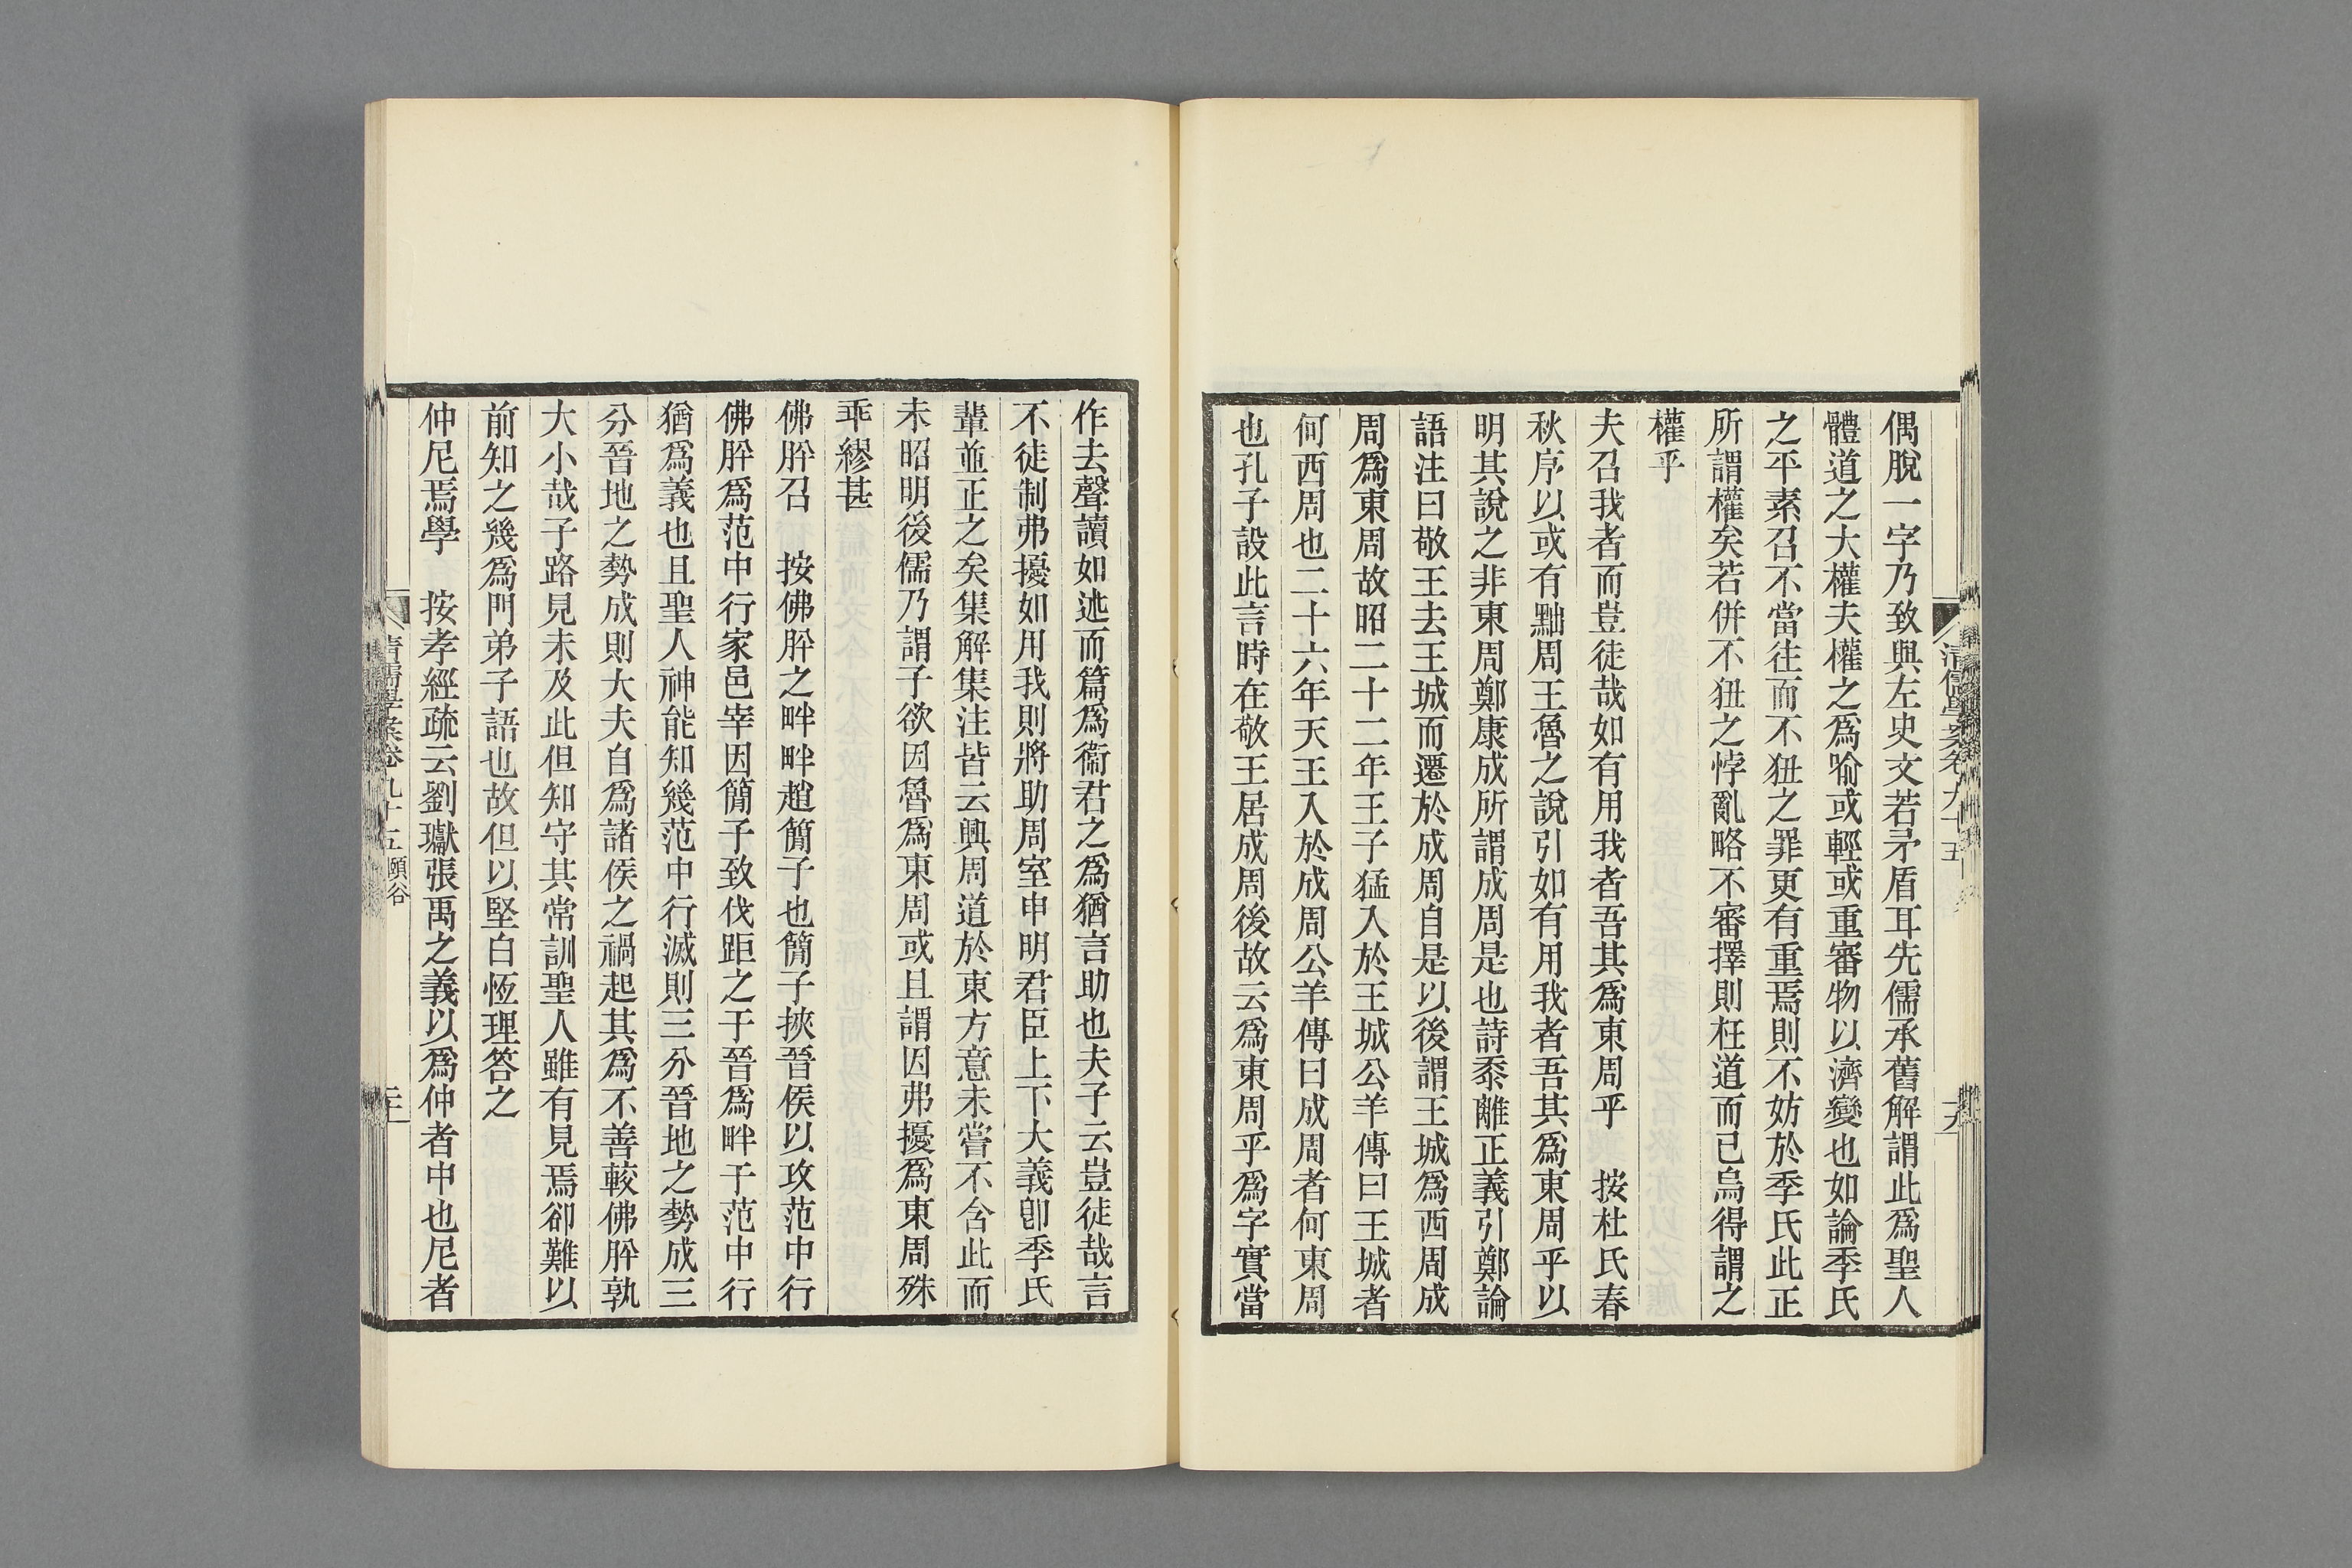 偶脫一字乃致與左史文若矛盾耳先儒承舊解謂此爲聖人
體道之大權夫權之爲喻或輕或重審物以濟變也如論季氏
之平素召不當往而不狃之罪更有重焉則不妨於季氏此正
所謂權矣若併不狃之悖亂略不審擇則枉道而已烏得謂之
權乎
夫召我者而豈徒哉如有用我者吾其爲東周乎　按杜氏春
秋序以或有黜周王魯之說引如有用我者吾其爲東周乎以
明其說之非東周鄭康成所謂成周是也詩黍離正義引鄭論
語注曰敬王去王城而遷於成周自是以後謂王城爲西周成
周爲東周故昭二十二年王子猛入於王城公羊傳曰王城者
何西周也二十六年天王入於成周公羊傳曰成周者何東周
也孔子設此言時在敬王居成周後故云爲東周乎爲字實當
作去聲讀如述而篇爲衞君之爲猶言助也夫子云豈徒哉言
不徒制弗擾如用我則將助周室申明君臣上下大義卽季氏
輩並正之矣集解集注皆云興周道於東方意未嘗不含此而
未昭明後儒乃謂子欲因魯爲東周或且謂因弗擾爲東周殊
乖繆甚
佛肸召　按佛肸之畔畔趙簡子也簡子挾晉侯以攻范中行
佛肸爲范中行家邑宰因簡子致伐距之于晉爲畔于范中行
猶爲義也且聖人神能知幾范中行滅則三分晉地之勢成三
分晉地之勢成則大夫自爲諸侯之禍起其爲不善較佛肸孰
大小哉子路見未及此但知守其常訓聖人雖有見焉卻難以
前知之幾爲門弟子語也故但以堅白恆理答之
仲尼焉學　按孝經疏云劉瓛張禹之義以爲仲者中也尼者
清儒學案卷九十五 頤谷